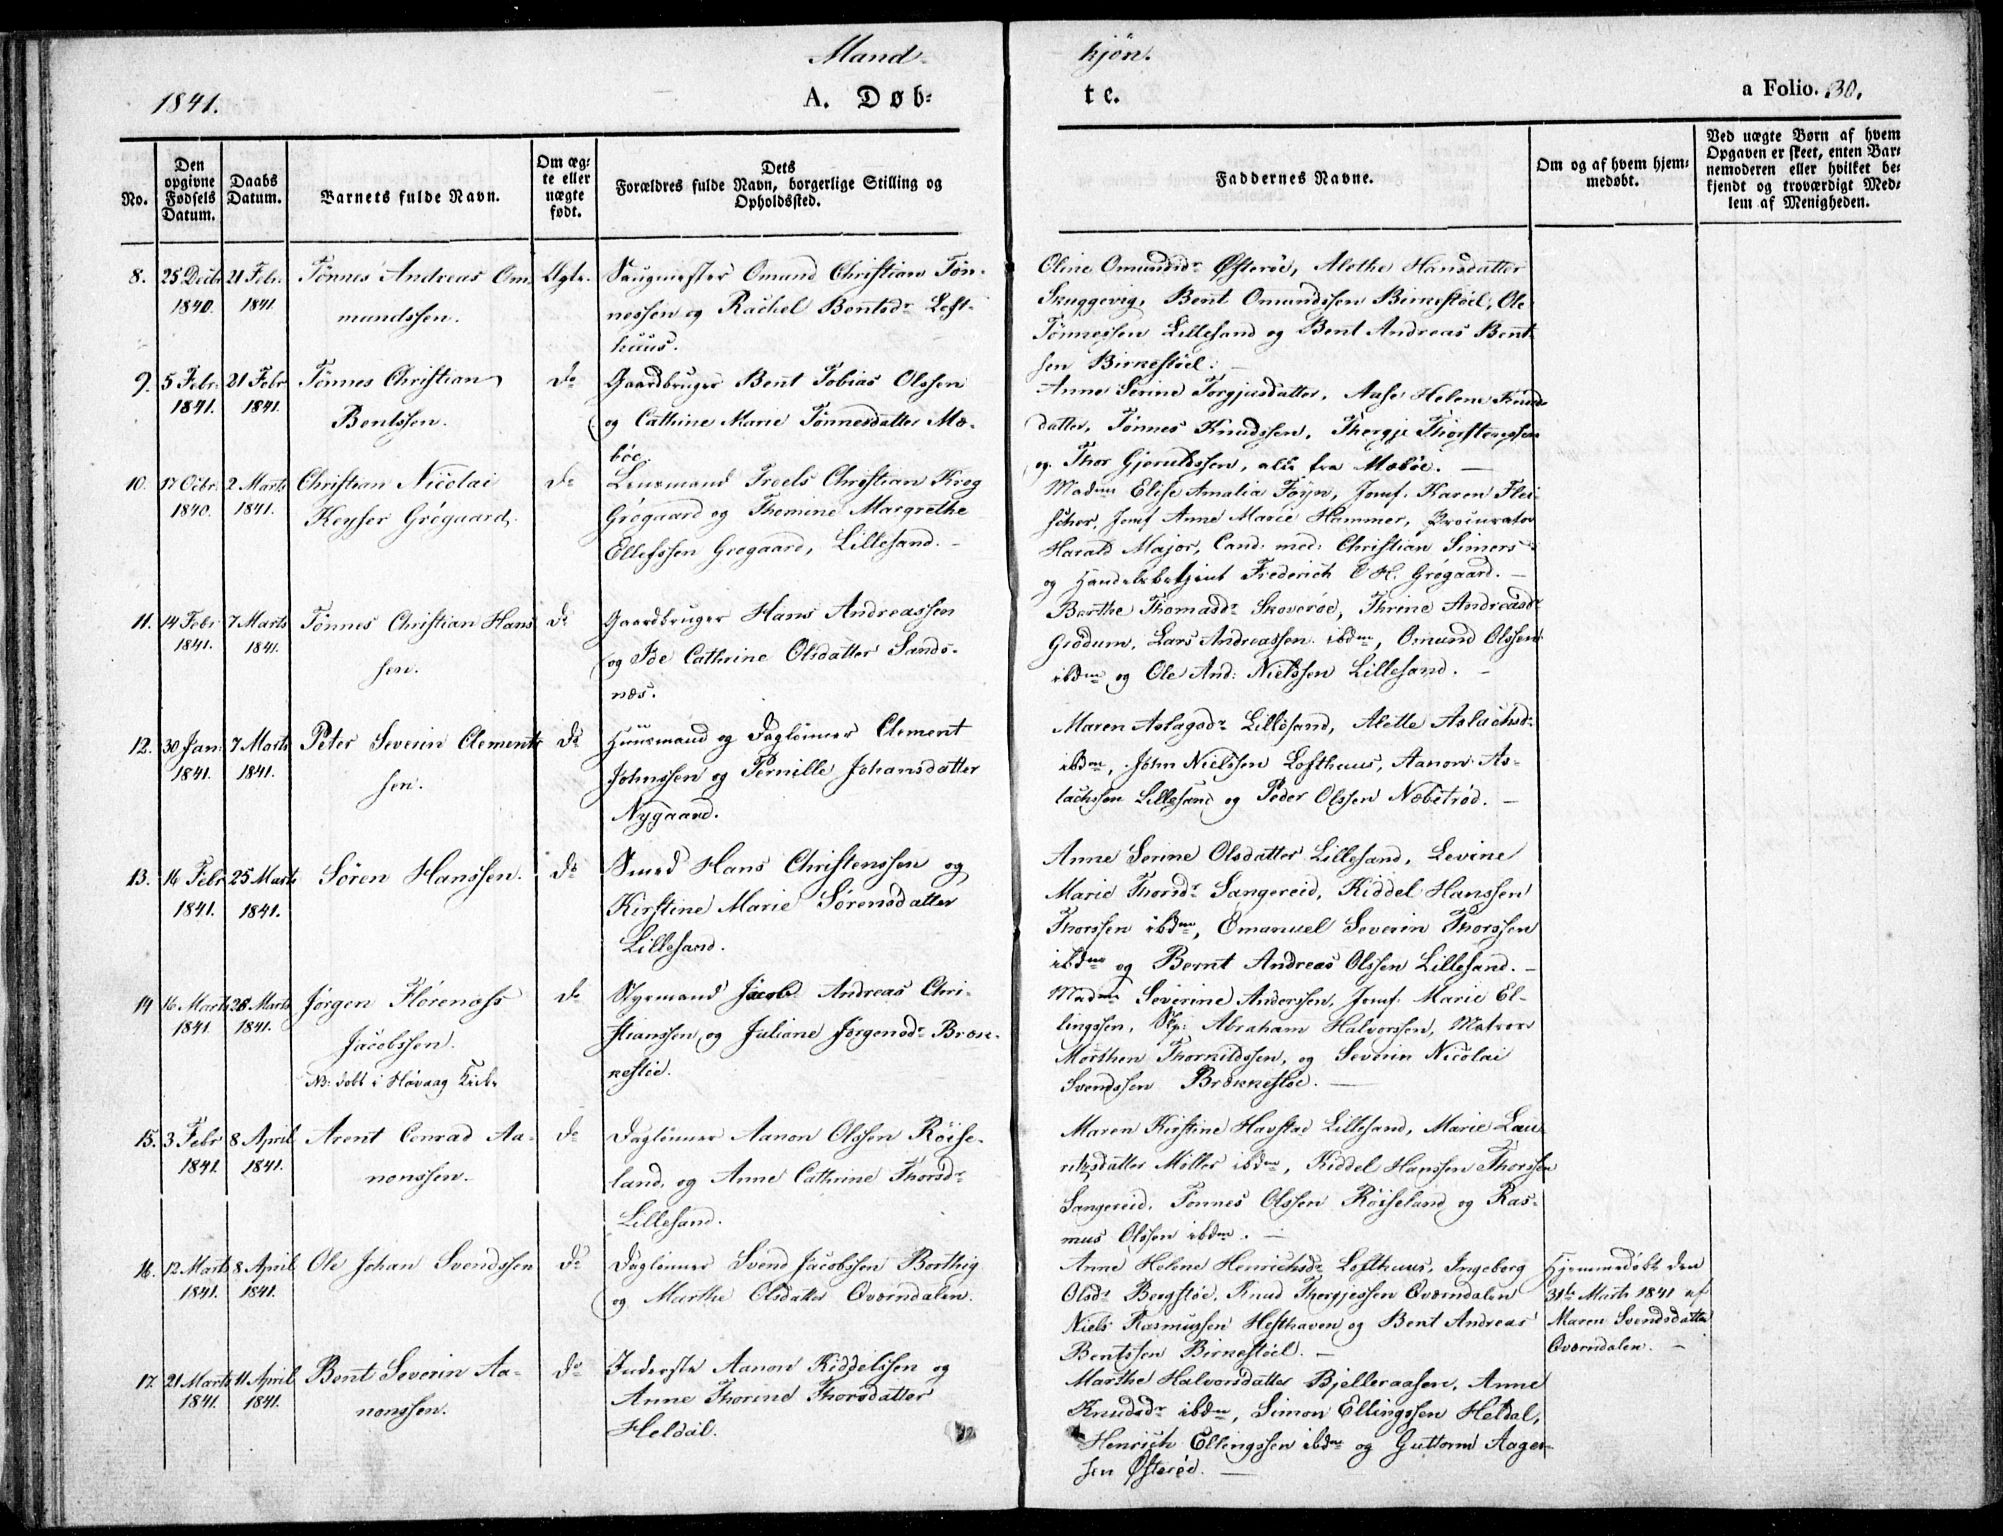 Mand-
kjön.
1841.
A. Døb-
te.
a Folio. 30.
No.
Den
opgivne
Fødsels
Datum.
Daabs
Datum.
Barnets fulde Navn.
Om æg-
te eller
uægte
født.
Dets
Forældres fulde Navn, borgerlige Stilling og
Opholdssted.
Faddernes Navne.
Om og af hvem hjem-
medøbt.
Ved uægte Børn af hvem
Opgaven er skeet, enten Bar-
nemoderen eller hvilket be-
kjendt og troværdigt Med-
lem af Menigheden.
8. 25 Decbr 21 Febr. Tönnes Andreas Om- Ægte. Saugmester Omund Christian Tön-
1840. 1841 mundssen. nessen og Rachel Bentsdr Loft-
huus.
Oline Omundsdr Østeröe, Alethe Hansdatter
Skuggevig, Bent Omundssen Birkestöel, Ole
Tönnessen Lillesand og Bent Andreas Bent-
sen Birkestöel.
9. 5 Febr. 21 Febr Tönnes Christian do Gaardbruger Bent Tobias Olssen
1841. 1841. Bentssen. og Cathrine Marie Tönnesdatter Mæ-
böe.
Anne Serine Torgjusdatter, Aase Helene Knuds-
datter, Tönnes Knudssen, Thergje Thorstenssen
og Thor Gjeruldssen, alle fra Mæböe. —
10. 17 Octbr. 2 Marts Christian Nicolai do Lensmand Troels Christian Krog
1840. 1841. Keyser Grögaard. Grögaard og Thomine Margrethe
Ellefssen Grögaard, Lillesand. —
Madme Elise Amalia Föyn, Jomf. Karen Flei-
scher, Jomf Anne Marie Hammer, Procurator
Harald Major, Cand: med: Christian Simers
og Handelsbetjent Frederich C H. Grögaard. —
11. 14 Febr 7 Marts Tönnes Christian Hans do Gaardbruger Hans Andreassen
1841. 1841. sen. og Ide Cathrine Olsdatter Sands-
næs.
Berthe Thomasdr Skoveröe, Thrine Andreasdr
Grödum, Lars Andreassen ibdm, Omund Olssen
ibdm og Ole And: Nielssen Lillesand. —
12. 30 Jan: 7 Marts Peter Severin Clements do Huusmand og Daglönner Clement
1841. 1841. sen. Johnssen og Pernille Johansdatter
Nygaard.
Maren Aslagsdr Lillesand, Alette Aslachsdr
ibdm, John Nielssen Lofthuus, Aanon As-
lachssen Lillesand og Peder Olssen Næbetröd. —
13. 16 Febr 25 Marts Sören Hanssen. do Smed Hans Christenssen og
1841. 1841. Kirstine Marie Sörensdatter
Lillesand.
Anne Serine Olsdatter Lillesand, Levine
Marie Thorsdr Sangereid, Kiddel Hanssen
Thorssen ibdm, Emanuel Severin Thorssen
ibdm og Bernt Andreas Olssen Lillesand. —
14 16 Marts 28 Marts Jörgen Hörenæss do Styrmand Jacob Andreas Chri-
1841. 1841. Jacobssen. stianssen og Juliane Jörgensdr Bræk-
NB: döbt i Hövaag Kirke kestöe.
Madme Severine Anderssen, Jomf. Marie El-
lingssen, Skp: Abraham Halvorssen, Matros
Morthen Thorkildssen, og Severin Nicolai
Svendssen Brækkestöe. —
15. 3 Febr 8 April Arent Conrad Aa- do Daglönner Aanon Olssen Röise-
1841. 1841. nonssen. land, og Anne Cathrine Thorsdr
Lillesand.
Maren Kirstine Havstad Lillesand, Marie Lau-
ritzdatter Möller ibdm, Kiddel Hanssen Thorssen
Sangereid, Tönnes Olssen Röiseland og Ras-
mus Olssen ibdm. —
16. 12 Marts 8 April Ole Johan Svendssen do Daglönner Svend Jacobssen Borthig
1841. 1841. og Marthe Olsdatter Qværndalen.
Anne Helene Henrichsdr Lofthuus, Ingeborg
Olsdr Bergstöe, Knud Thergjessen Qværndalen
Niels Rasmussen Hesthaven og Bent Andreas
Bentssen Birkestöel. —
Hjemmedöbt den
31te Marts 1841 af
Maren Svendsdatter
Qværndalen. —
17. 21 Marts 11 April Bent Severin Aa- do Inderste Aanon Kiddelssen og
1841. 1841. nonssen. Anne Thorine Thorsdatter
Heldal.
Marthe Halvorsdatter Bjelleraasen, Anne
Knudsdr ibdm, Simon Ellingssen Heldal,
Henrich Ellingssen ibdm og Guttorm Aager-
sen Østeröe. —